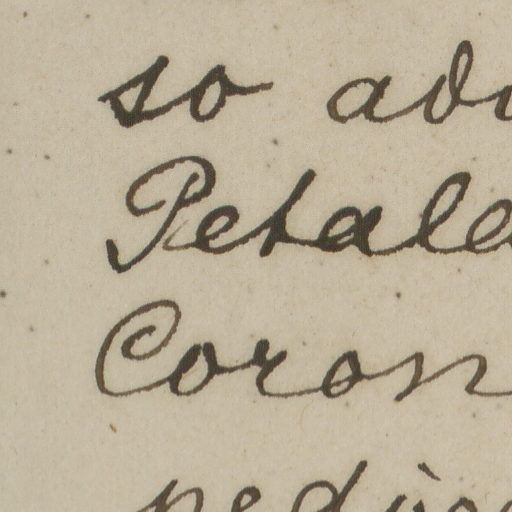 so adv
Petale
Coron
pedice